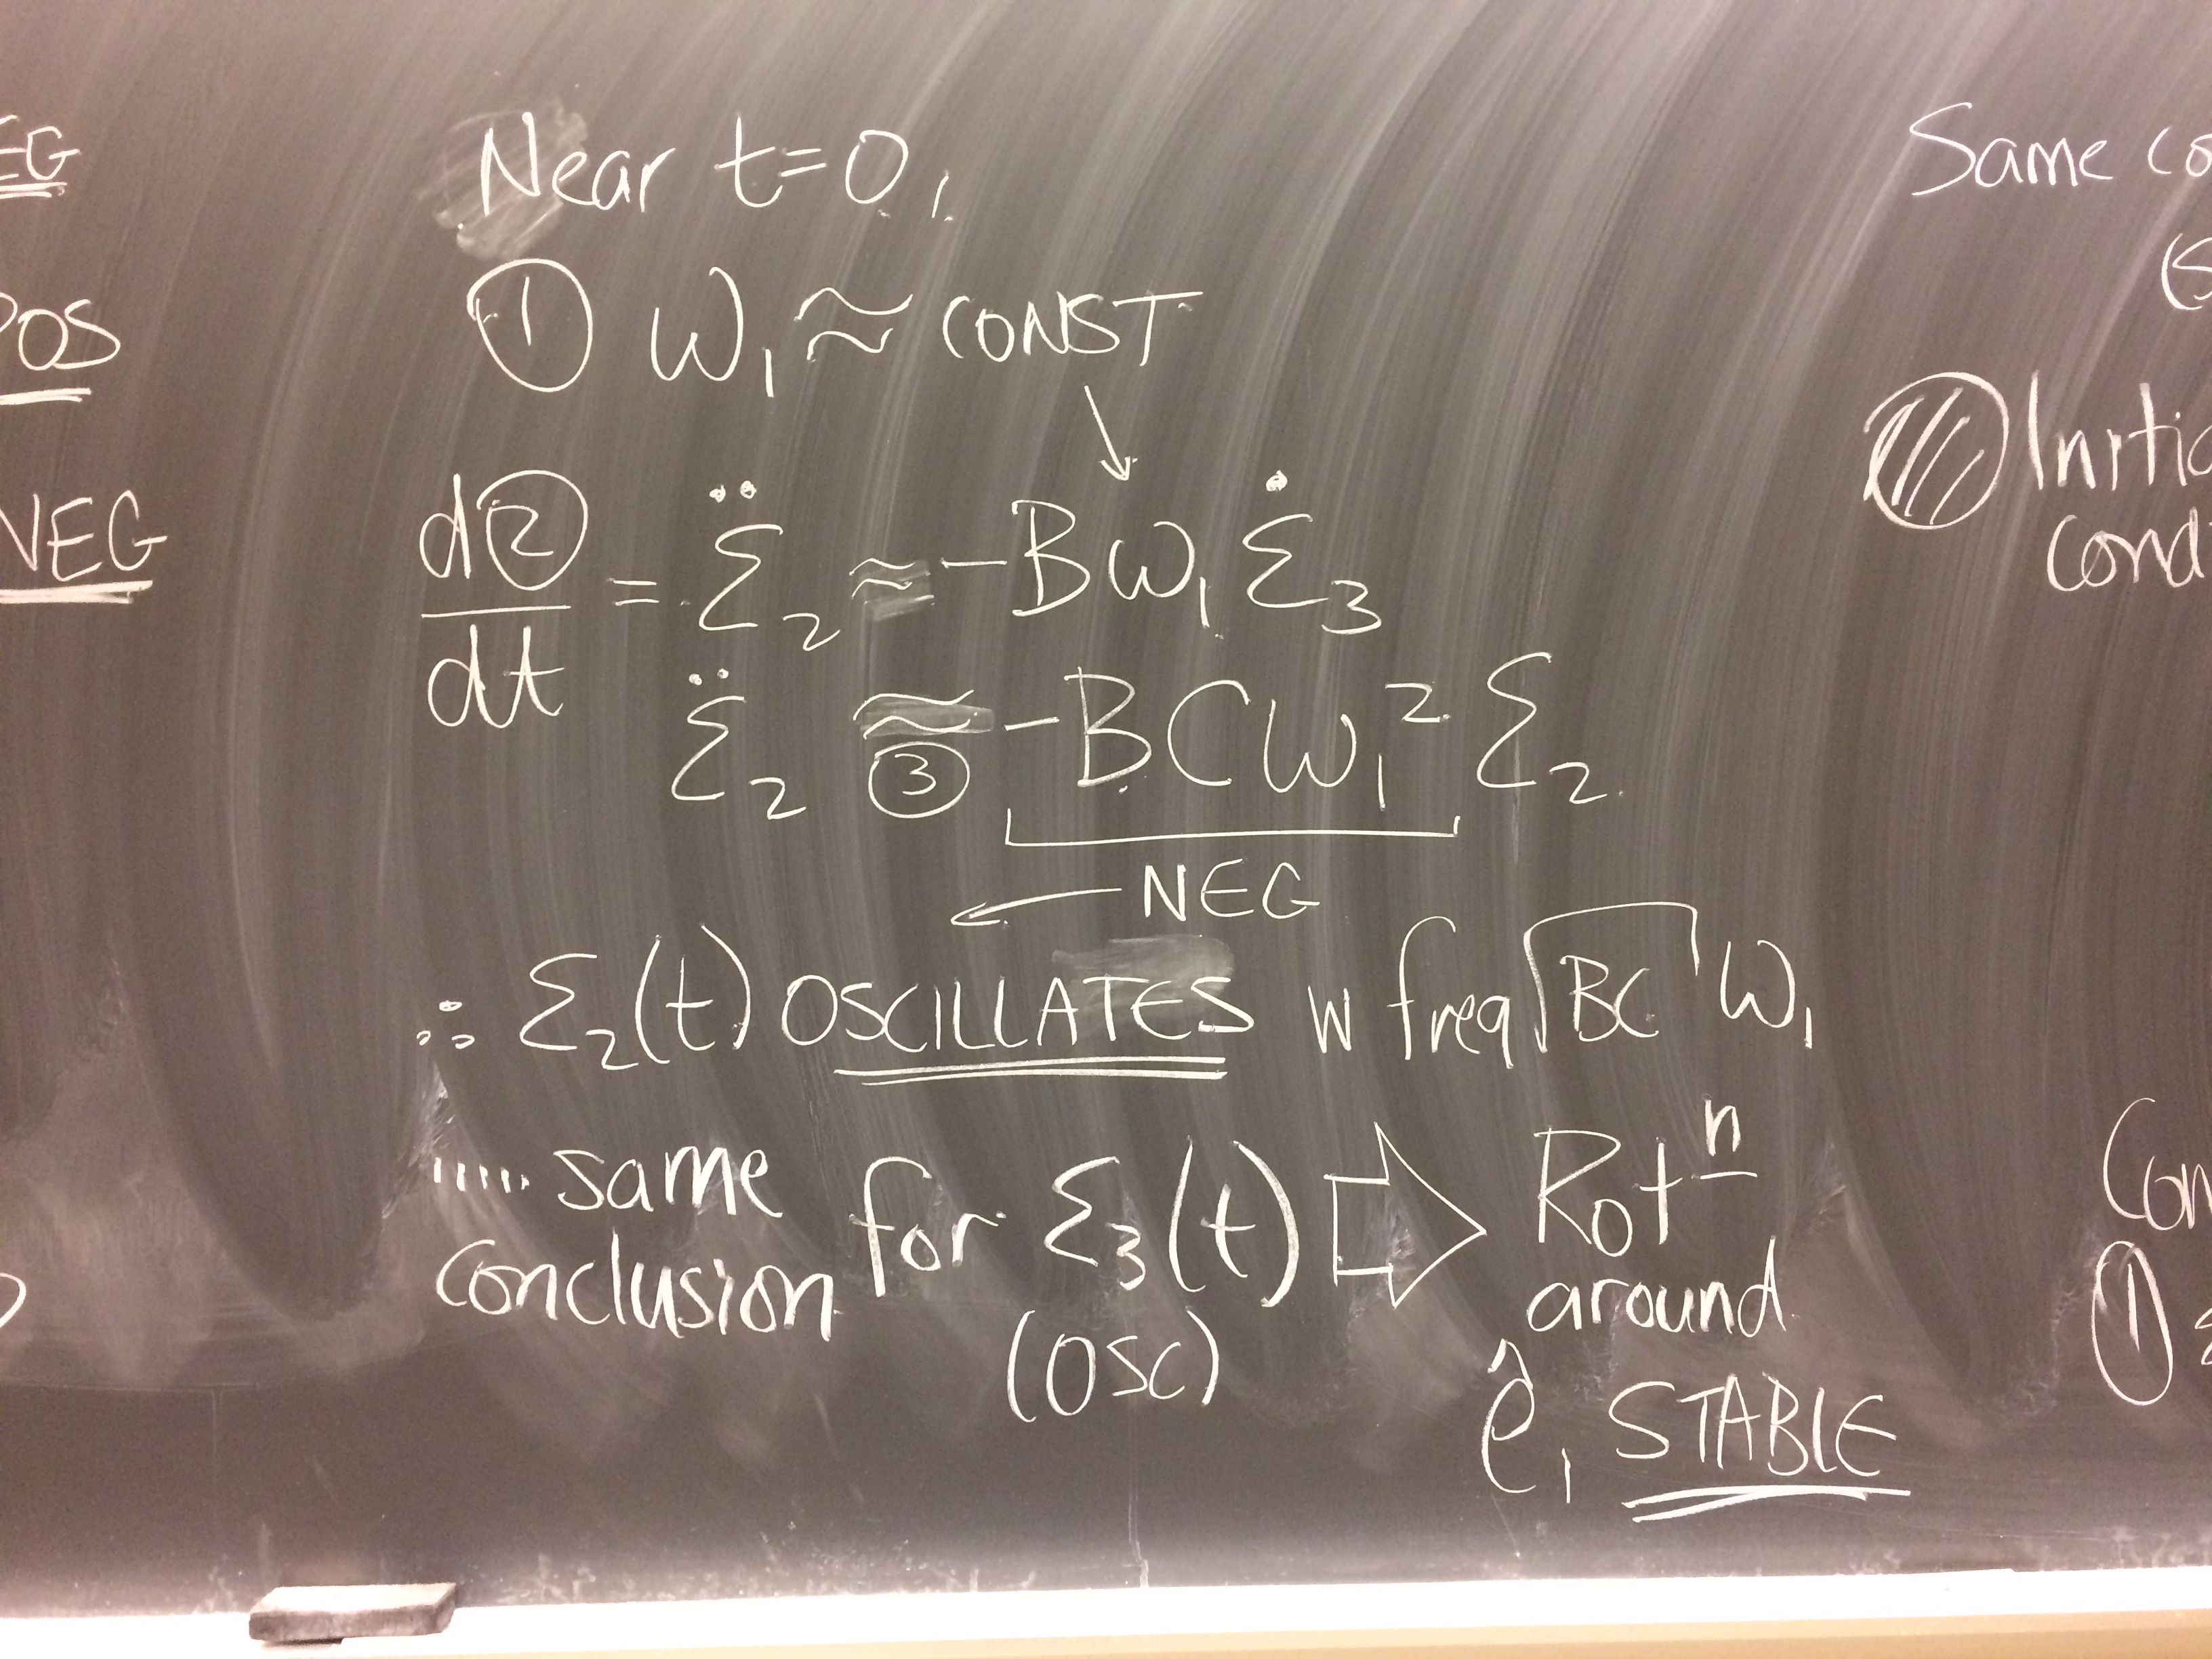 EG
POS
NEG
Near t=0,
① ω₁ ≈ CONST
d②/dt = ε̈₂ ≈ -Bω₁ ε̇₃
ε̈₂ ≈ -BCω₁² ε₂
③
NEG
∴ ε₂(t) OSCILLATES w freq √BC ω₁
..... same conclusion for ε₃(t) (OSC) ⇨ Rotⁿ around ê₁ STABLE
Same co
Initia
cond
Con
①